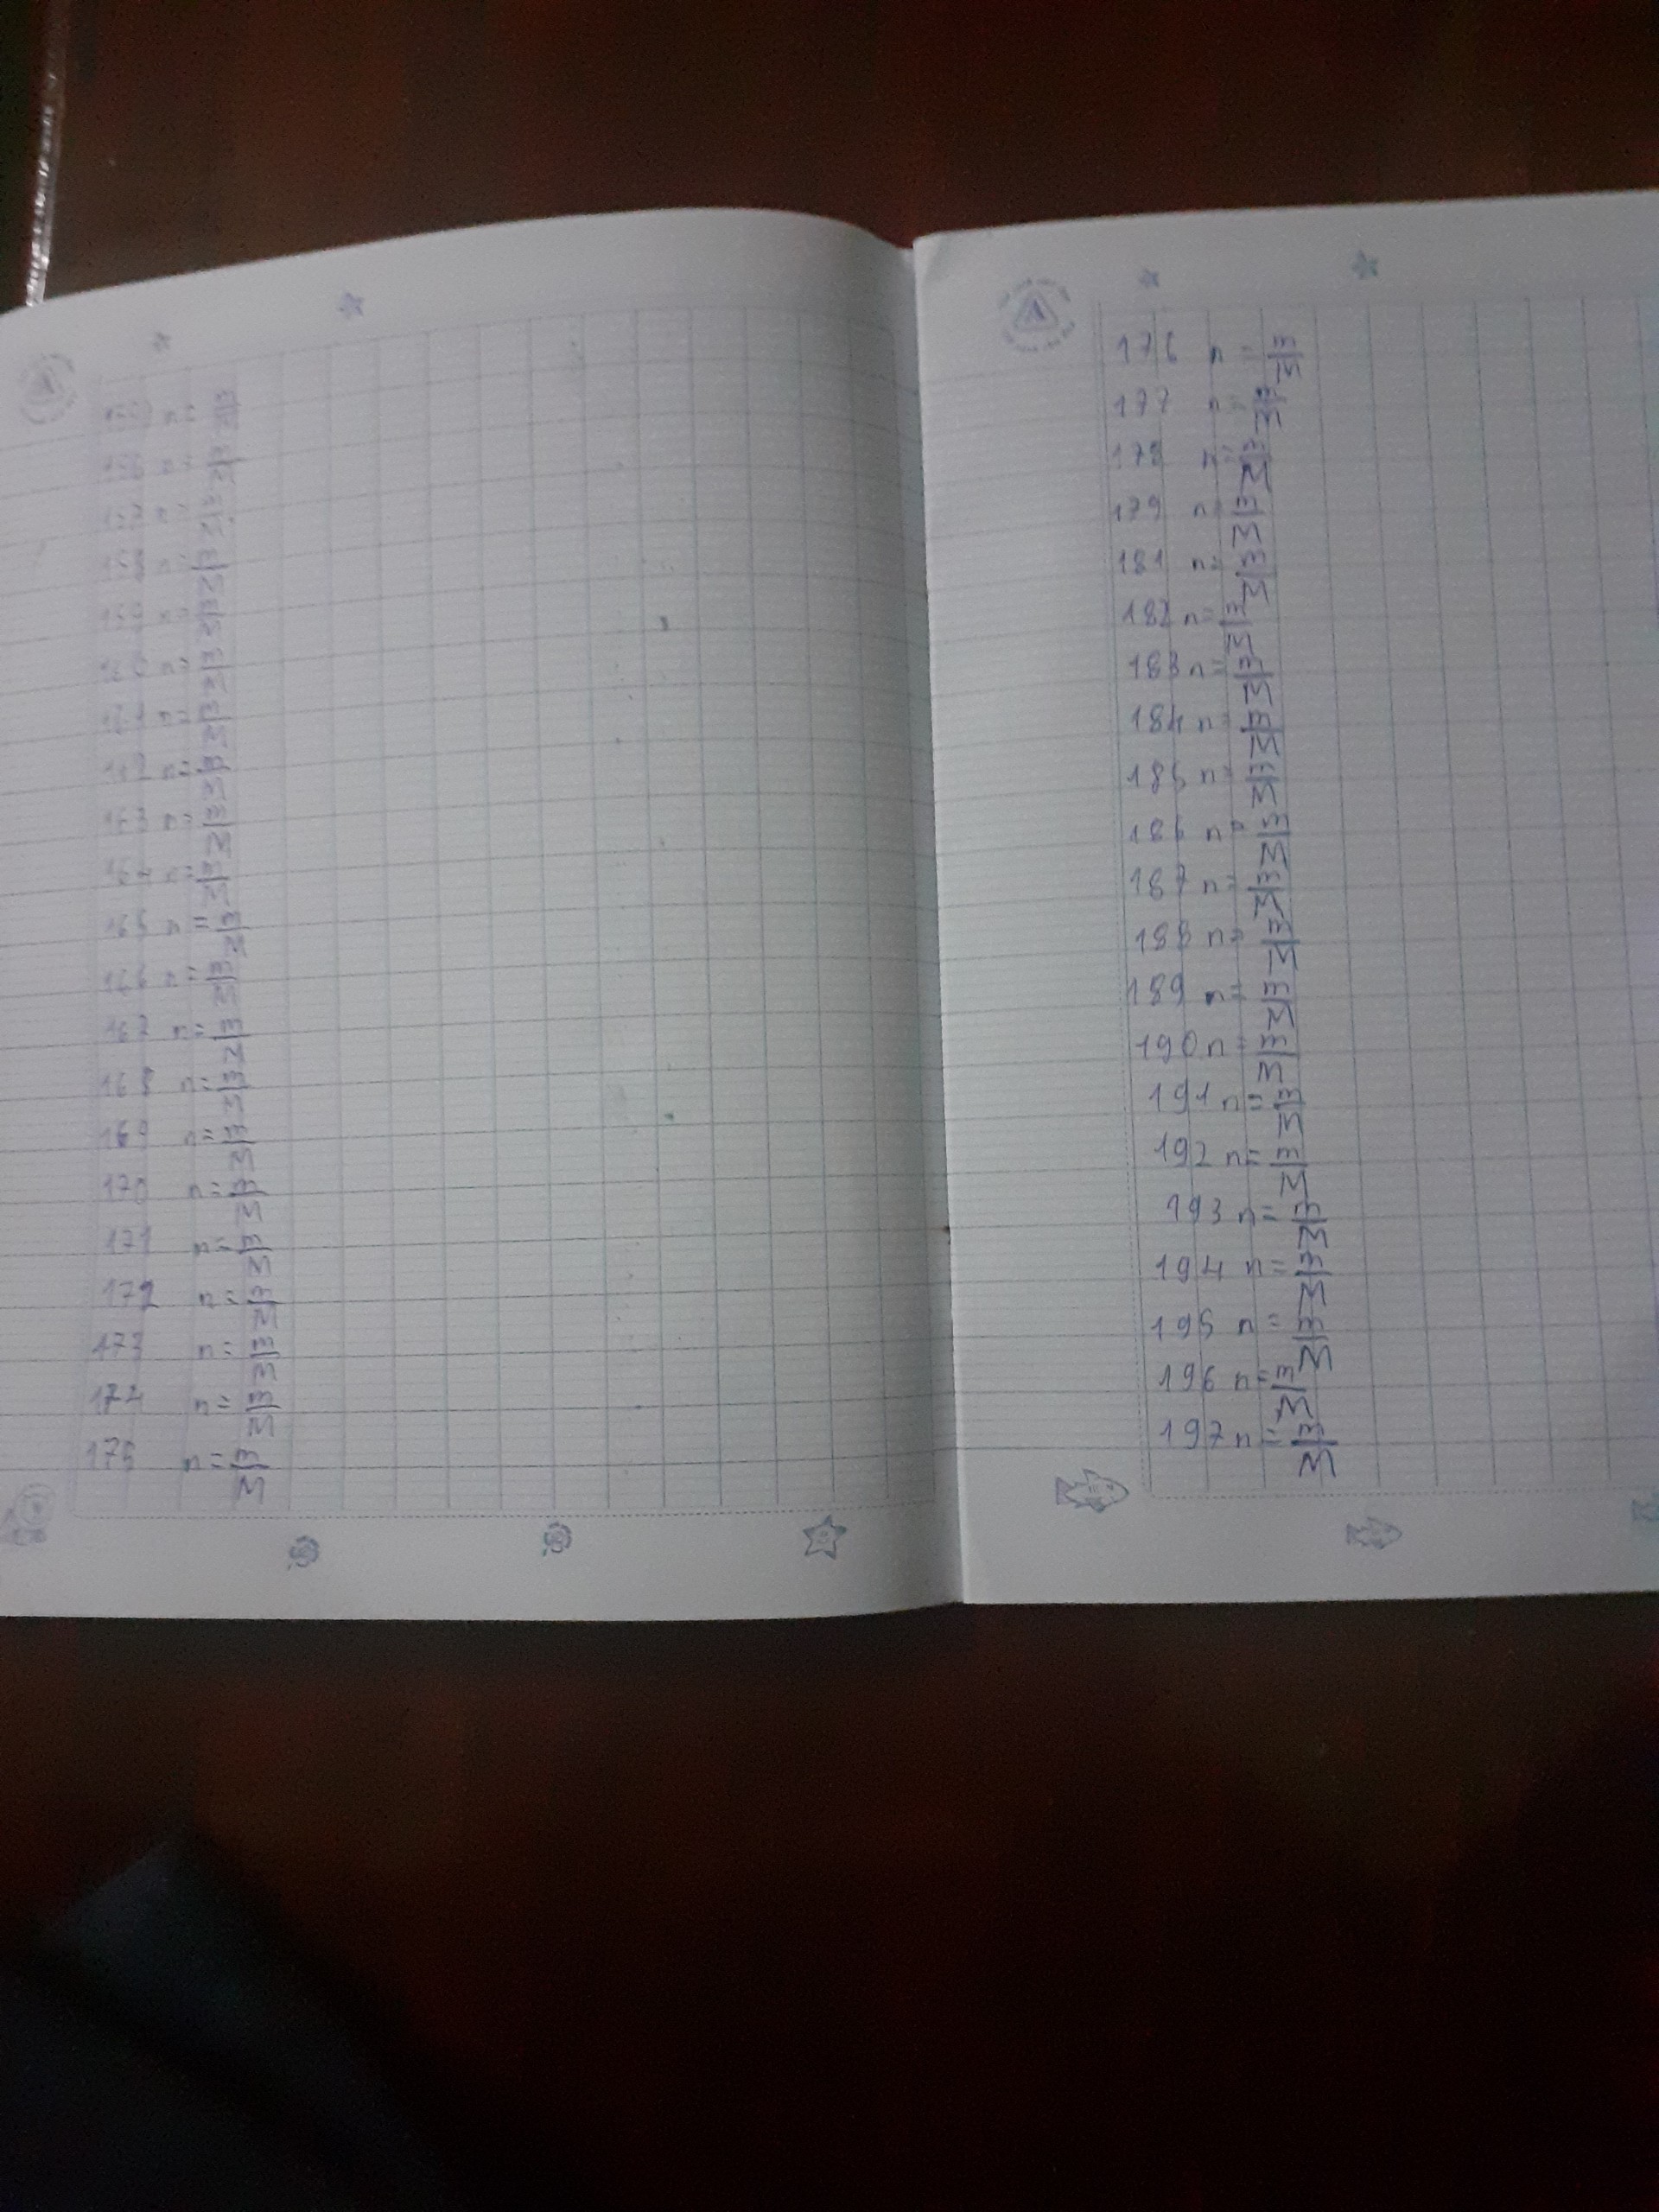 155 n = m/M
156 n = m/M
157 n = m/M
158 n = m/M
159 n = m/M
160 n = m/M
161 n = m/M
162 n = m/M
163 n = m/M
164 n = m/M
165 n = m/M
166 n = m/M
167 n = m/M
168 n = m/M
169 n = m/M
170 n = m/M
171 n = m/M
172 n = m/M
173 n = m/M
174 n = m/M
175 n = m/M
176 n = m/M
177 n = m/M
178 n = m/M
179 n = m/M
181 n = m/M
182 n = m/M
183 n = m/M
184 n = m/M
185 n = m/M
186 n = m/M
187 n = m/M
188 n = m/M
189 n = m/M
190 n = m/M
191 n = m/M
192 n = m/M
193 n = m/M
194 n = m/M
195 n = m/M
196 n = m/M
197 n = m/M